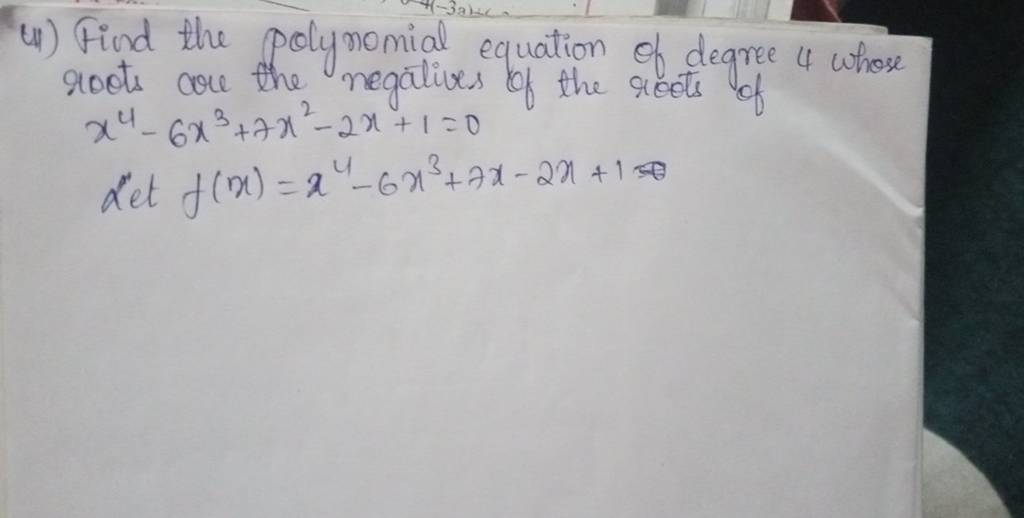 4) Find the polynomial equation of degree 4 whose
roots are the negatives of the roots of
x⁴ - 6x³ + 7x² - 2x + 1 = 0
Let f(x) = x⁴ - 6x³ + 7x - 2x + 1